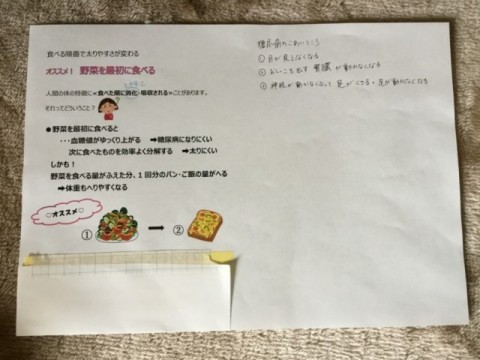 食べる順番で太りやすさが変わる
オススメ! 野菜を最初に食べる
人間の体の特徴に≪食べた順に消化・吸収される≫ことがあります。
それってどういうこと?
●野菜を最初に食べると
・・・血糖値がゆっくり上がる ➡糖尿病になりにくい
次に食べたものを効率よく分解する ➡太りにくい
しかも!
野菜を食べる量がふえた分、1回分のパン・ご飯の量がへる
➡体重もへりやすくなる
♡オススメ♡
① ➡ ②
糖尿病のこわいところ
① 目が見えなくなる
② おしっこを出す 腎臓 が動かなくなる
③ 神経が動かなくなって 足がくさる・足が動かなくなる